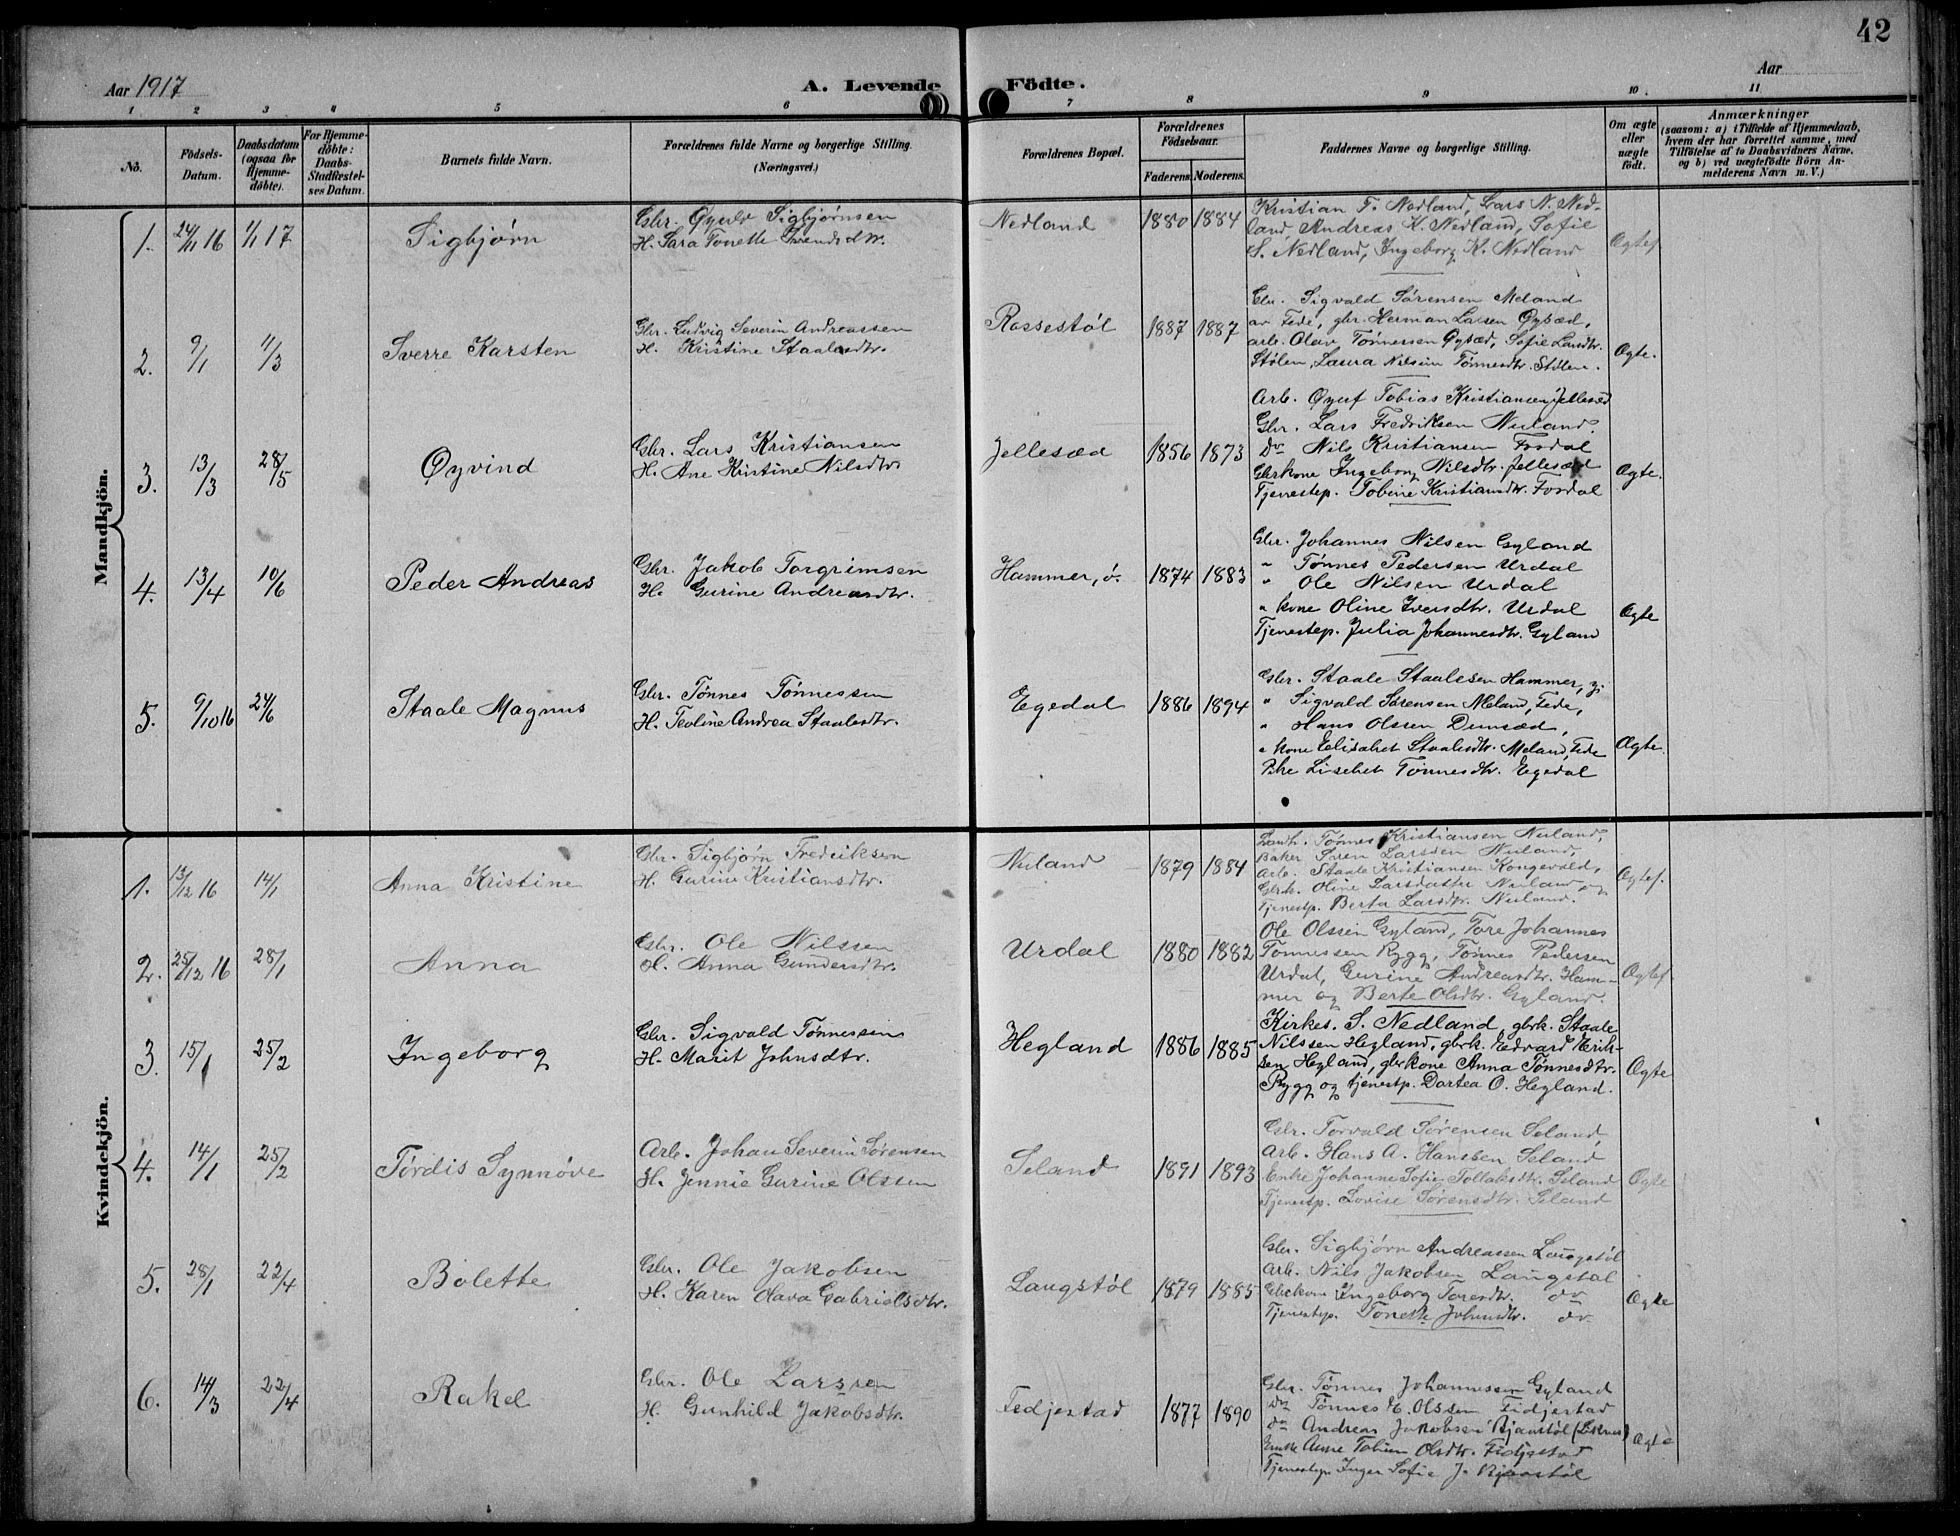 42
Aar 1917 A. Levende Födte. Aar
1 2 3 4 5 6 7 8 9 10. 11
No. Födsels-Datum. Daabsdatum (ogsaa for Hjemme-döbte). For Hjemme-döbte: Daabs-Stadfæstelses Datum. Barnets fulde Navn. Forældrenes fulde Navne og borgerlige Stilling. (Næringsvei.) Forældrenes Bopæl. Forældrenes Födselsaar. Faderens. Moderens. Faddernes Navne og borgerlige Stilling. Om ægte eller uægte födt. Anmærkninger (saasom: a) i Tilfælde af Hjemmedaab, hvem der har forrettet samme, med Tilföielse af to Daabsvidners Navne, og b) ved uægtefödte Börn Anmelderens Navn m. V.)
Mandkjön.
1. 24/11 16 1/1 17 Sigbjørn Gbr. Sigbjørnsen Nedland 1880 1884 Kristian F. Nedland, Lars N. Ned-
H. Sara Tonette land, Andreas K. Nedland, Sofie
S. Nedland, Ingeborg K. Nedland Ægtef
2. 9/1 4/3 Sverre Karsten Gbr. Ludvig Severin Andreassen Rossestøl 1887 1887 Gbr. Sigvald Sørensen Meland
H. Kristine Staalesdtr. av Fede, gbr. Herman Larsen
arb. Olav Tønnessen Sofie
Stølen, Laura Tønnesdtr. Stølen. Ægte.
3. 13/3 28/5 Øyvind Gbr. Lars Kristiansen Jellesæd 1856 1873 Arb. Tobias Kristiansen Jellesæd
H. Ane Kristine Nilsdtr Gbr. Lars Fredriksen Nuland.
Do Nils Kristiansen Fosdal
Gbrkone Ingeborg Nilsdtr. Jellesæd
Tjenestep. Tobine Kristiansdtr. Fosdal Ægte.
4. 13/4 10/6 Peder Andreas Gbr. Jakob Torgrimsen Hammer, ø. 1874 1883 Gbr. Johannes Nilsen Gyland
H. Gurine Andreasdtr. " Tønnes Pedersen Urdal
" Ole Nilsen Urdal
" kone Oline Iversdtr. Urdal
Tjenestep. Julia Johannesdtr. Gyland Ægte
5. 9/10 16 24/6 Staale Magnus Gbr. Tønnes Tønnessen Egedal 1886 1894 Gbr. Staale Staalesen Hammer,
H. Teoline Andrea Staalesdtr. " Sigvald Sørensen Meland, Fede,
" Hans Olssen Dunsæd,
" kone Elisabet Staalesdtr. Meland, Fede
Pike Lisebet Tønnesdtr. Egedal Ægte.
Kvindekjön.
1. 13/12 16 14/1 Anna Kristine Gbr. Sigbjørn Fredriksen Nuland 1879 1884 Landh. Tønnes Kristiansen Nuland,
H. Gurine Kristiansdtr. Baker Søren Larssen Nuland,
Arb. Staale Kristiansen Kongevold,
Gbrk. Oline Larsdatter Nuland, og
Tjenestp. Berta Larsdtr. Nuland. Ægtef.
2. 25/12 16 28/1 Anna Gbr. Ole Nilssen Urdal 1880 1882 Ole Olssen Gyland, Tore Johannes
H. Anna Gundersdtr. Tønnessen Rygg, Tønnes Pedersen
Urdal, Gurine Andreasdtr. Ham-
mer og Berte Olsdtr. Gyland. Ægtef
3. 15/1 25/2 Ingeborg Gbr. Sigvald Tønnessen Hegland 1886 1885 Kirkes. S. Nedland, gbrk. Staale
H. Marit Johnsdtr. Nilssen Hegland, gbrk. Edvard Erik-
sen Hegland, gbrkone Anna Tønnesdtr.
Rygg og tjenestp. Dortea O. Hegland. Ægte
4. 14/1 25/2 Tørdis Synnøve Arb. Johan Severin Sørensen Seland 1891 1893 Gbr. Torvald Sørensen Seland,
H. Jennie Gurine Olssen Arb. Hans A. Hanssen Seland
Enke Johanne Sofie Tollaksdtr. Seland
Tjenestp. Lovise Sørensdtr. Seland Ægte
5. 28/1 22/4 Bolette Gbr. Ole Jakobsen Langstøl 1879 1885 Gbr. Sigbjørn Andreassen Langstøl
H. Karen Olava Gabrielsdtr. Arb. Nils Jakobsen Langstøl
Gbrkone Ingeborg Toresdtr. do
Tjenestep. Tonette Johnsdtr. do Ægte
6. 14/3 22/4 Rakel Gbr. Ole Larssen Fedjestad 1877 1890 Gbr. Tønnes Johannessen Gyland
H. Gunhild Jakobsdtr. Do Tønnes E. Olssen Fidjestad
do Andreas Jakobsen Bjønstøl
Enke Anne Tobine Olsdtr. Fidjestad
Tjenestep. Inger Sofie J. Bjønstøl Ægte